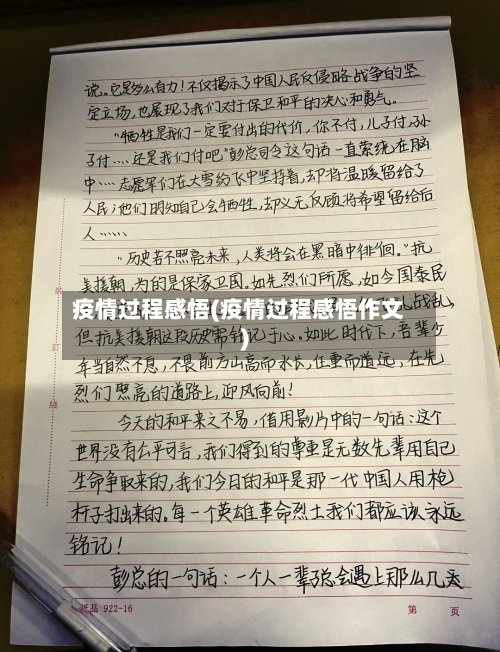 说。它是多么有力！不仅揭示了中国人民反侵略战争的坚
定立场，也展现了我们对于保卫和平的决心和勇气。
“牺牲是我们一定要付出的代价，你不付，儿子付，孙
子付……还是我们付吧”彭总司令这句话一直萦绕在脑
中……志愿军们在大雪纷飞中坚持着，却将温暖留给了
人民；他们明知自己会牺牲，却义无反顾将希望留给后
人……
“历史若不照亮未来，人类将会在黑暗中徘徊。”抗
美援朝，为的是保家卫国。如先烈们所愿，如今国泰民
疫情过程感悟(疫情过程感悟作文
)
战乱，
但抗美援朝这段历史需铭记于心。如此时代下，吾辈少
年当自然不息，不畏前方山高而水长，任重而道远，在先
烈们照亮的道路上，迎风向前！
今天的和平来之不易，借用影片中的一句话：这个
世界没有公平可言，我们得到的尊重是无数先辈用自己
生命争取来的，我们今日的和平是那一代中国人用枪
杆子打出来的。每一个英雄革命烈士我们都应该永远
铭记！
彭总的一句话：一个人一辈子总会遇上那么几天
装
订
线
品 922-16
第 页